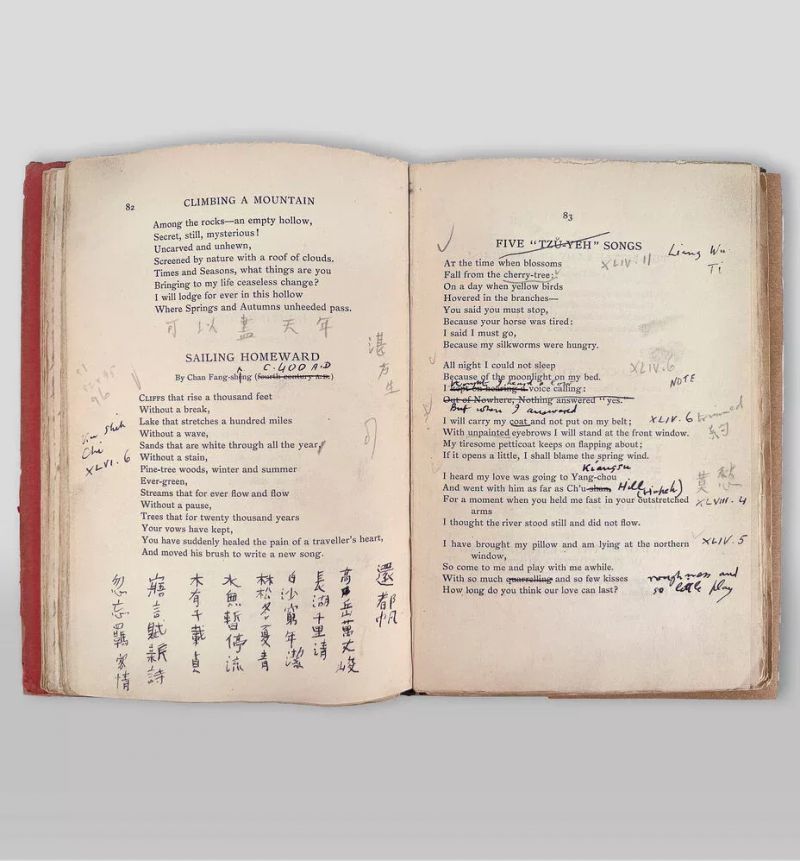 82
CLIMBING A MOUNTAIN
Among the rocks—an empty hollow,
Secret, still, mysterious!
Uncarved and unhewn,
Screened by nature with a roof of clouds.
Times and Seasons, what things are you
Bringing to my life ceaseless change?
I will lodge for ever in this hollow
Where Springs and Autumns unheeded pass.
可以盡天年
SAILING HOMEWARD
C. 400 A.D
By Chan Fang-shēng (fourth century A.D.)
湛方生
CLIFFS that rise a thousand feet
Without a break,
Lake that stretches a hundred miles
Without a wave,
Sands that are white through all the year,
Without a stain,
Pine-tree woods, winter and summer
Ever-green,
Streams that for ever flow and flow
Without a pause,
Trees that for twenty thousand years
Your vows have kept,
You have suddenly healed the pain of a traveller's heart,
And moved his brush to write a new song.
Chi
XLVI. 6
還都帆
高岳萬丈峻
長湖千里清
白沙窮年潔
林松冬夏青
水無暫停流
木有千載貞
寤言賦新詩
忽忘羈客情
83
FIVE "TZŬ-YEH" SONGS
Liang Wu
Ti
XLIV. 11
AT the time when blossoms
Fall from the cherry-tree:
On a day when yellow birds
Hovered in the branches—
You said you must stop,
Because your horse was tired:
I said I must go,
Because my silkworms were hungry.
All night I could not sleep
XLIV. 6
Because of the moonlight on my bed.
NOTE
I kept on hearing a voice calling:
Out of Nowhere, Nothing answered "yes."
But when I answered
I will carry my coat and not put on my belt;
XLIV. 6
With unpainted eyebrows I will stand at the front window.
My tiresome petticoat keeps on flapping about;
If it opens a little, I shall blame the spring wind.
I heard my love was going to Yang-chou
Kiangsu
And went with him as far as Ch'u-shan.
Hill
For a moment when you held me fast in your outstretched
arms
XLVIII. 4
I thought the river stood still and did not flow.
I have brought my pillow and am lying at the northern
window,
XLIV. 5
So come to me and play with me awhile.
With so much quarrelling and so few kisses
roughness and
so little play
How long do you think our love can last?